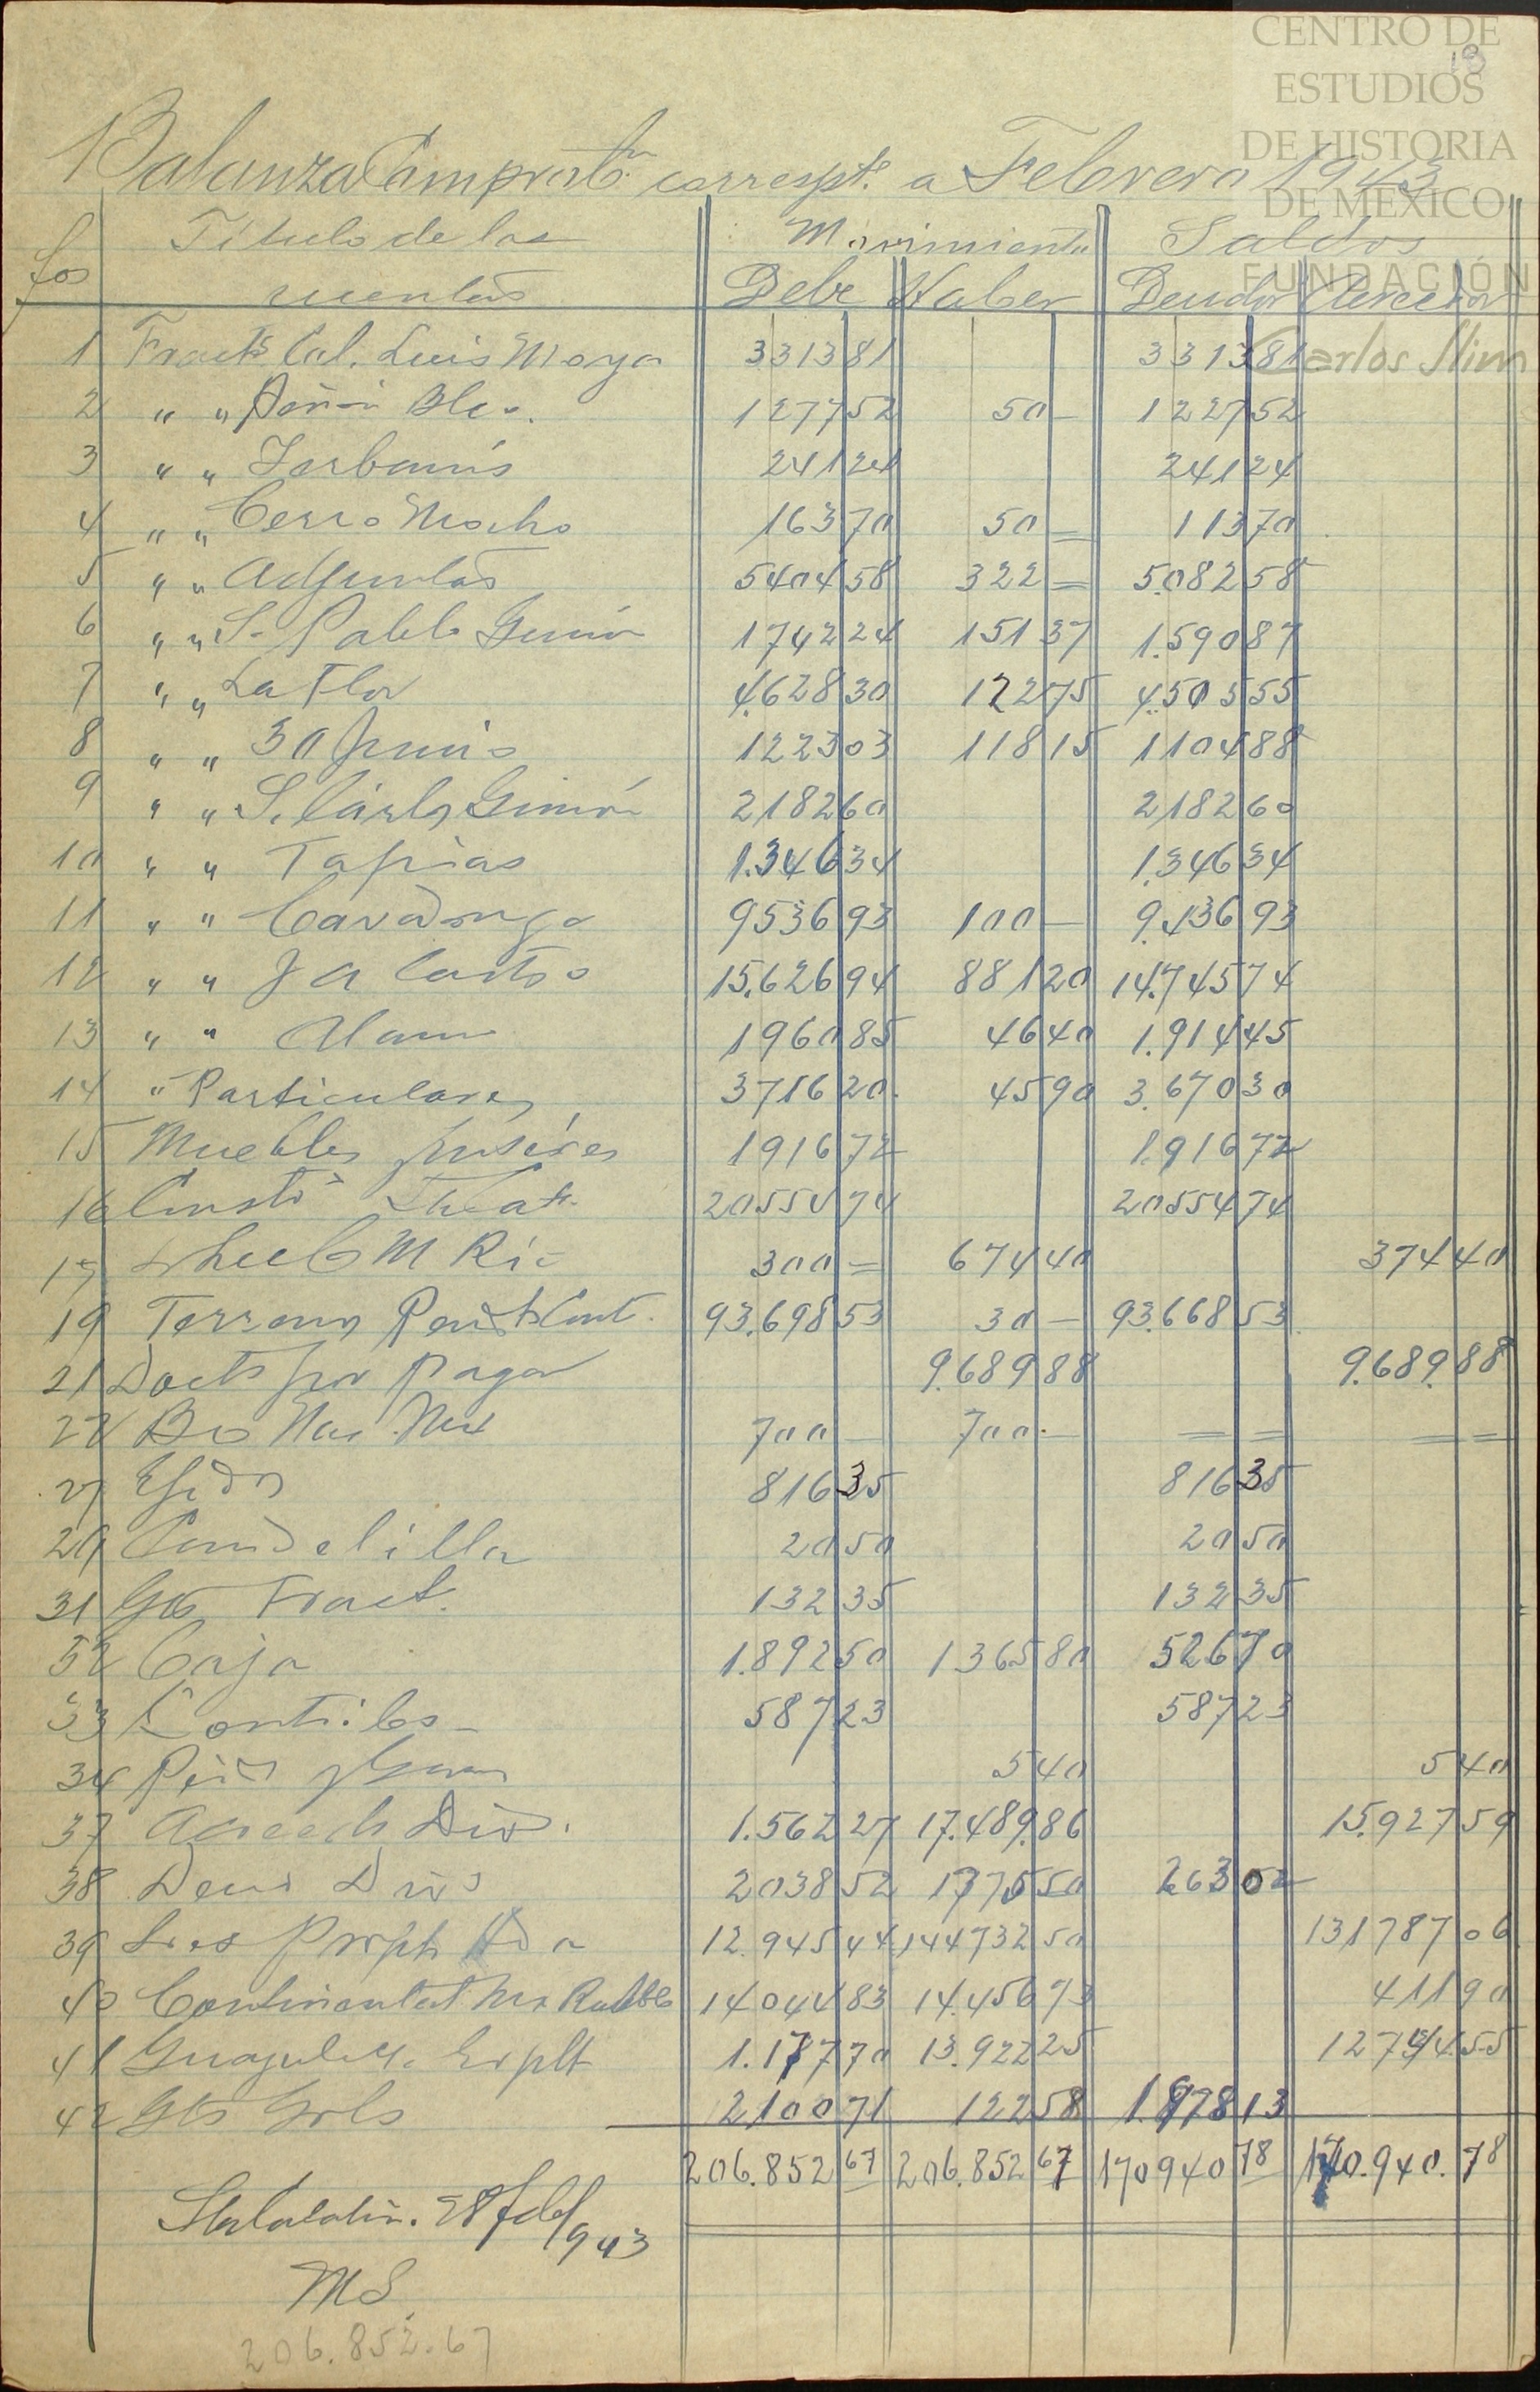 CENTRO DE
19
ESTUDIOS
DE HISTORIA
DE MÉXICO
FUNDACIÓN
Carlos Slim
Balanza Comprobn correspte a Febrero 1943
fos Titulo de las cuentas Movimiento Saldos
Debe Haber Deudor Acreedor
1 Fracto Cal. Luis Moya 3313 81 3313 81
2 " " Peñon Blco. 1277 52 50 — 1227 52
3 " " Jarbanis 241 24 241 24
4 " " Cerro Mocho 163 70 50 = 113 70
5 " " Adjuntas 5404 58 322 = 5.082 58
6 " " S. Pablo Gimón 1742 24 151 37 1.590 87
7 " " La Flor 4.628 30 122 75 4.505 55
8 " " 30 Junio 1223 03 118 15 1104 88
9 " " S. Carlos Gimón 2182 60 2182 60
10 " " Tapias 1.346 34 1.346 34
11 " " Cavadonga 9536 93 100 — 9.436 93
12 " " J A Castro 15.626 94 881 20 14.745 74
13 " " Alamo 1960 85 46 40 1.914 45
14 " Particulares 3716 20 45 90 3.670 30
15 Muebles y enseres 1916 72 1.916 72
16 20554 74 20554 74
17 M Rio 300 = 674 40 374 40
19 Terreno Rend 93.698 53 30 — 93.668 53
21 Docts por Pagar 9.689 88 9.689.88
22 Bco Nac. Mex 700 — 700.— = = = =
27 Ejidos 816 35 816 35
29 Candelilla 20 50 20 50
31 Gts Fract. 132 35 132 35
32 Caja 1.892 50 1365 80 526 70
33 Contribs — 587 23 587 23
34 Perd y Gan 5 40 5 40
37 Acreeds Divs. 1.562 27 17.489.86 15.927 59
38 Deud Divs 2038 52 1775 50 263 02
39 Sres Propts Hda 12.945 44 144732 50 131787 06
40 Continental Mex Rubber 14044 83 14.456 73 411 90
41 Guayule Explt 1.177 70 13.922 25 12744.55
42 Gts Grls 2100 71 122 58 1.978 13
206.852 67 206.852 67 170940 78 170.940.78
28 Feb/943
MS.
206.852.67